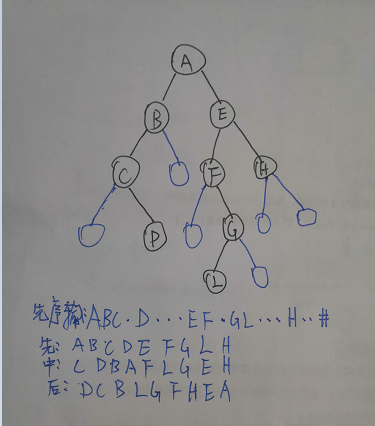 A
B
E
C
F
H
D
G
L
先序输:ABC·D···EF·GL···H··#
先: A B C D E F G L H
中: C D B A F L G E H
后: D C B L G F H E A